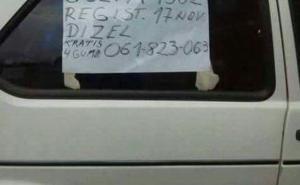 REGIST. 17 NOV.
DIZEL
KRATIS
4 GUMA 061-823-063